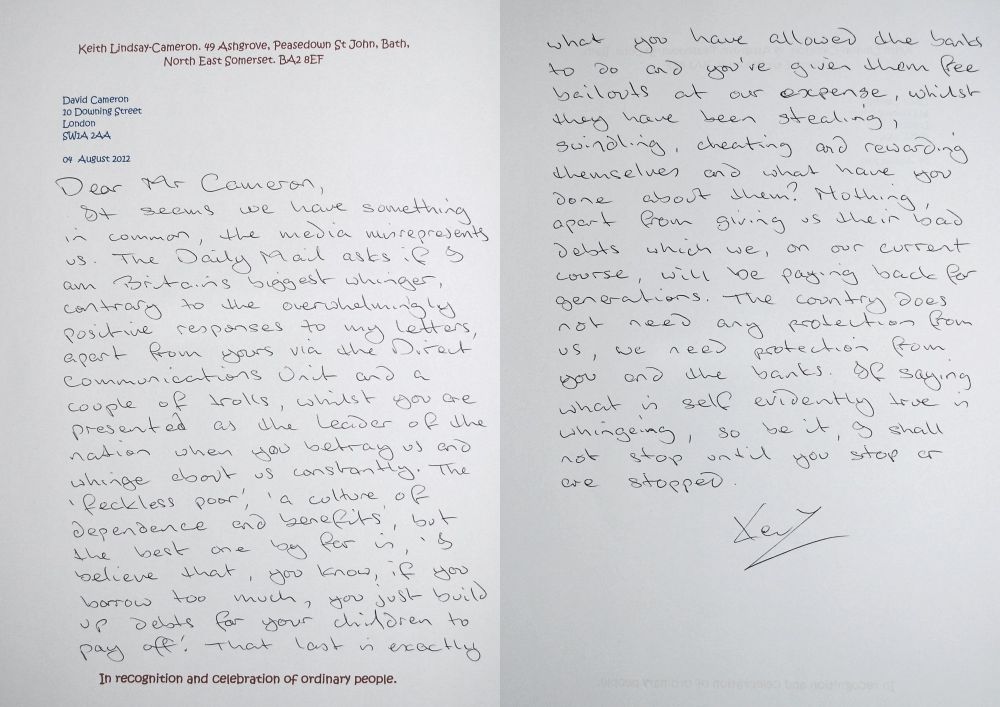 Keith Lindsay-Cameron. 49 Ashgrove, Peasedown St John, Bath,
North East Somerset. BA2 8EF
David Cameron
10 Downing Street
London
SW1A 2AA
04 August 2012
Dear Mr Cameron,
It seems we have something
in common, the media misrepresents
us. The Daily Mail asks if I
am Britains biggest whinger,
contrary to the overwhelmingly
positive responses to my letters,
apart from yours via the Direct
Communications Unit and a
couple of trolls, whilst you are
presented as the leader of the
nation when you betray us and
whinge about us constantly. The
'feckless poor', 'a culture of
dependence and benefits', but
the best one by far is, 'I
believe that, you know, if you
borrow too much, you just build
up debts for your children to
pay off'. That last is exactly
In recognition and celebration of ordinary people.
what you have allowed the banks
to do and you've given them fee
bailouts at our expense, whilst
they have been stealing,
swindling, cheating and rewarding
themselves and what have you
done about them? Nothing,
apart from giving us their bad
debts which we, on our current
course, will be paying back for
generations. The country does
not need any protection from
us, we need protection from
you and the banks. If saying
what is self evidently true is
whingeing, so be it, I shall
not stop until you stop or
are stopped.